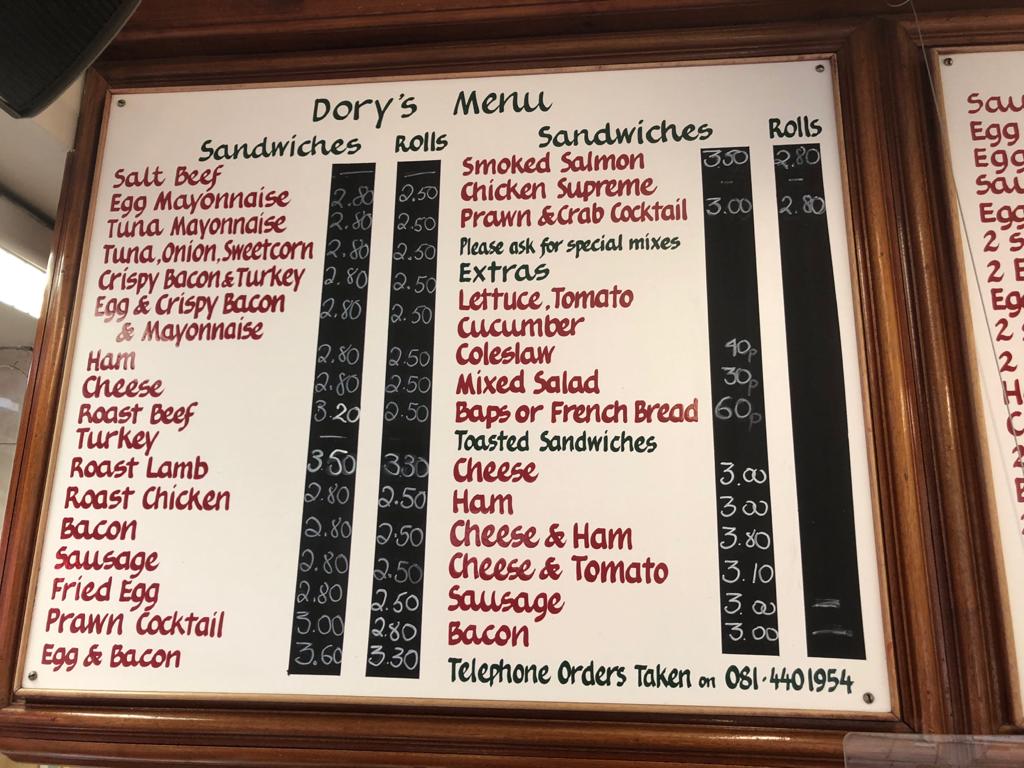 Dory's Menu
Sandwiches Rolls
Salt Beef — —
Egg Mayonnaise 2.80 2.50
Tuna Mayonnaise 2.80 2.50
Tuna, Onion, Sweetcorn 2.80 2.50
Crispy Bacon & Turkey 2.80 2.50
Egg & Crispy Bacon 2.80 2.50
& Mayonnaise
Ham 2.80 2.50
Cheese 2.80 2.50
Roast Beef 3.20 2.50
Turkey —
Roast Lamb 3.50 3.30
Roast Chicken 2.80 2.50
Bacon 2.80 2.50
Sausage 2.80 2.50
Fried Egg 2.80 2.50
Prawn Cocktail 3.00 2.80
Egg & Bacon 3.60 3.30
Sandwiches Rolls
Smoked Salmon 3.50 2.80
Chicken Supreme - -
Prawn & Crab Cocktail 3.00 2.80
Please ask for special mixes
Extras
Lettuce, Tomato
Cucumber
Coleslaw 40p
Mixed Salad 30p
Baps or French Bread 60p
Toasted Sandwiches
Cheese 3.00
Ham 3.00
Cheese & Ham 3.80
Cheese & Tomato 3.10
Sausage 3.00 —
Bacon 3.00 —
Telephone Orders Taken on 081·440 1954
Egg
Egg
Egg
2
2
Egg
2
2